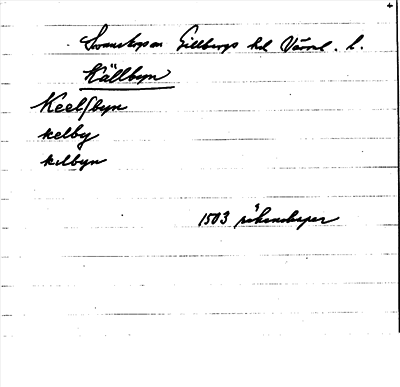 Svanskogs sn Gillbergs hd Värml. l.
Källbyn
Keelsbyn
kelby
kelbyn
1503 räkenskaper